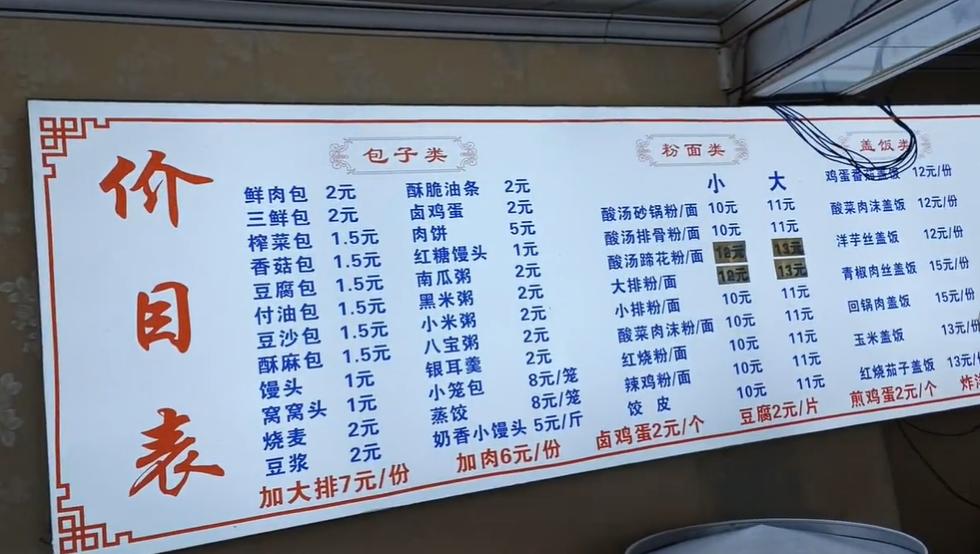 价目表
包子类
鲜肉包 2元
三鲜包 2元
榨菜包 1.5元
香菇包 1.5元
豆腐包 1.5元
付油包 1.5元
豆沙包 1.5元
酥麻包 1.5元
馒头 1元
窝窝头 1元
烧麦 2元
豆浆 2元
酥脆油条 2元
卤鸡蛋 2元
肉饼 5元
红糖馒头 1元
南瓜粥 2元
黑米粥 2元
小米粥 2元
八宝粥 2元
银耳羹 2元
小笼包 8元/笼
蒸饺 8元/笼
奶香小馒头 5元/斤
粉面类
小 大
酸汤砂锅粉/面 10元 11元
酸汤排骨粉/面 10元 11元
酸汤蹄花粉/面 13元
大排粉/面 13元
小排粉/面 10元 11元
酸菜肉沫粉/面 10元 11元
红烧粉/面 10元 11元
辣鸡粉/面 10元 11元
饺皮 10元 11元
盖饭类
鸡蛋番茄盖饭 12元/份
酸菜肉沫盖饭 12元/份
洋芋丝盖饭 12元/份
青椒肉丝盖饭 15元/份
回锅肉盖饭 15元/份
玉米盖饭 13元/份
红烧茄子盖饭 13元/份
加大排7元/份 加肉6元/份 卤鸡蛋2元/个 豆腐2元/片 煎鸡蛋2元/个 炸